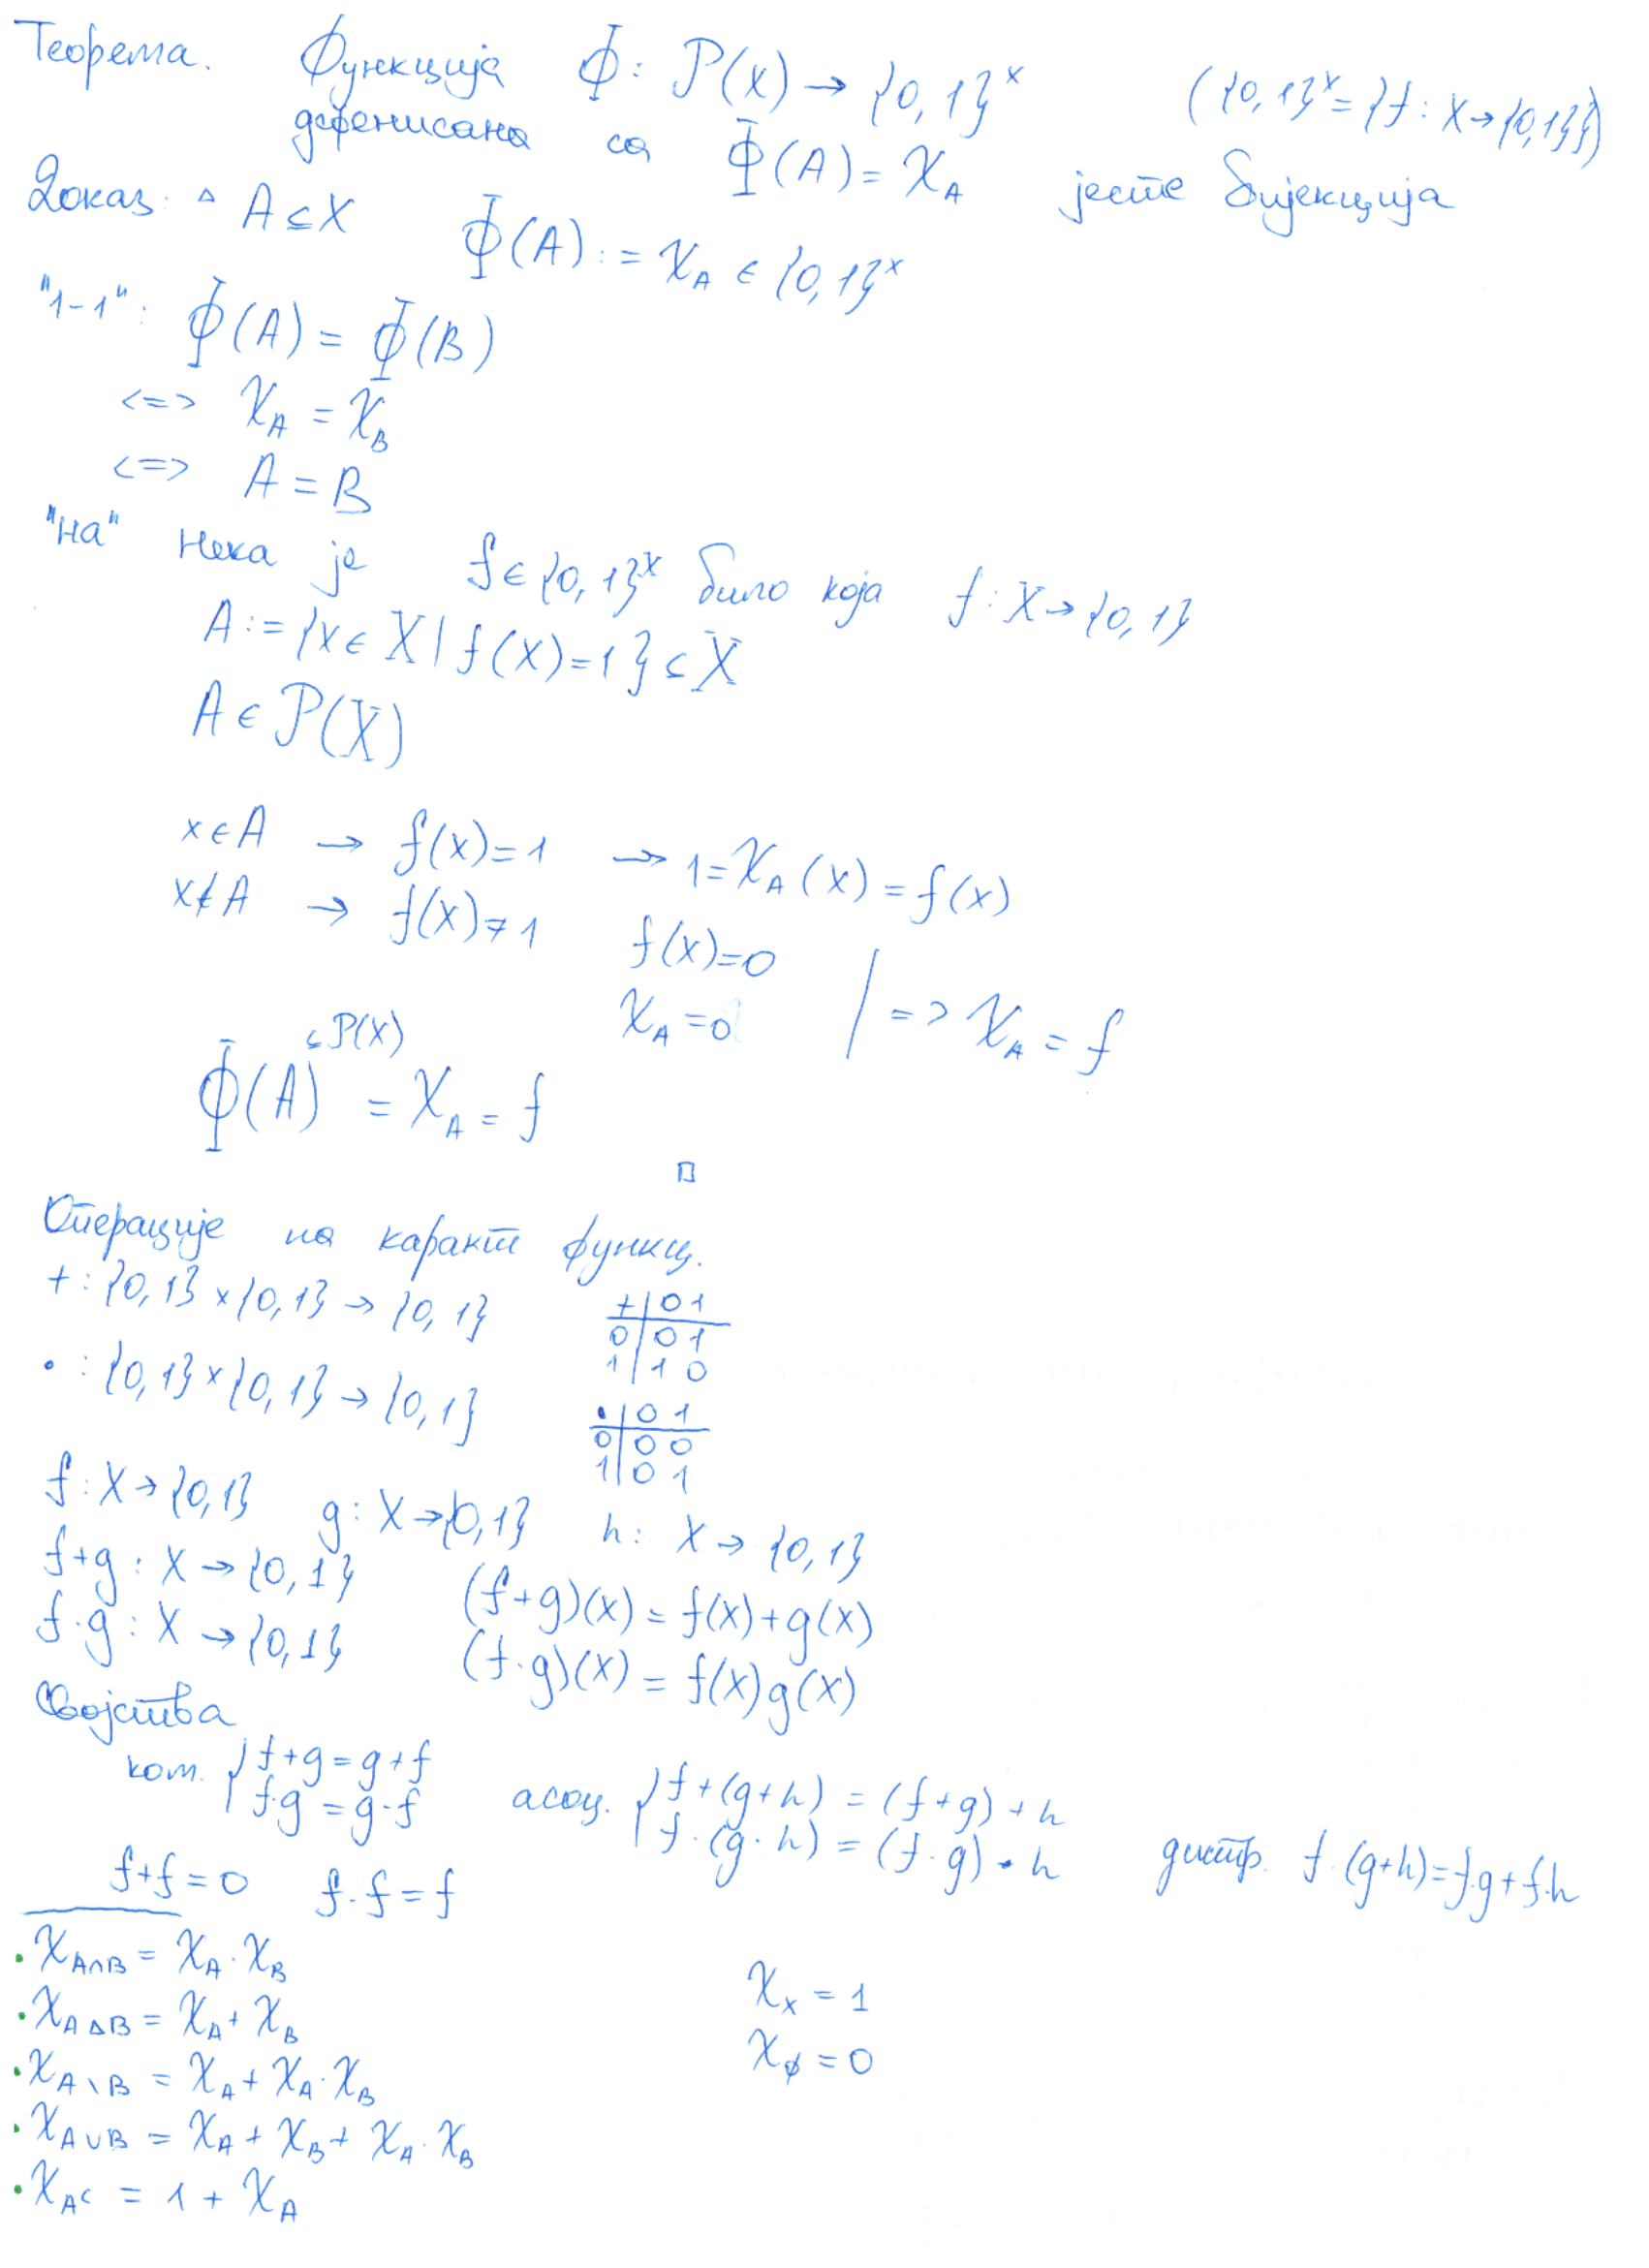 Теорема. Функција Φ: P(X) → {0,1}^X ({0,1}^X = {f : X→{0,1}})
дефенисана са Φ(A) = χ_A јесте бијекција
Доказ: △ A⊆X Φ(A) := χ_A ∈ {0,1}^X
"1-1": Φ(A) = Φ(B)
<=> χ_A = χ_B
<=> A = B
"на" Нека је f ∈ {0,1}^X било која f : X → {0,1}
A := {x ∈ X | f(x) = 1} ⊆ X
A ∈ P(X)
x ∈ A → f(x) = 1 → 1 = χ_A(x) = f(x)
x ∉ A → f(x) ≠ 1 f(x) = 0
χ_A = 0 | => χ_A = f
⊆ P(X)
Φ(A) = χ_A = f
□
Операције на каракт функц.
+ : {0,1} × {0,1} → {0,1}
+ | 0 1
0 | 0 1
1 | 1 0
• : {0,1} × {0,1} → {0,1}
• | 0 1
0 | 0 0
1 | 0 1
f : X → {0,1} g : X → {0,1} h : X → {0,1}
f+g : X → {0,1} (f+g)(x) = f(x) + g(x)
f·g : X → {0,1} (f·g)(x) = f(x)g(x)
Својства
ком. { f+g = g+f асоц. { f+(g+h) = (f+g)+h
f·g = g·f f·(g·h) = (f·g)·h дистр. f·(g+h) = f·g + f·h
f+f = 0 f·f = f
• χ_{A∩B} = χ_A · χ_B χ_X = 1
• χ_{A△B} = χ_A + χ_B χ_∅ = 0
• χ_{A\B} = χ_A + χ_A · χ_B
• χ_{A∪B} = χ_A + χ_B + χ_A · χ_B
• χ_{A^C} = 1 + χ_A